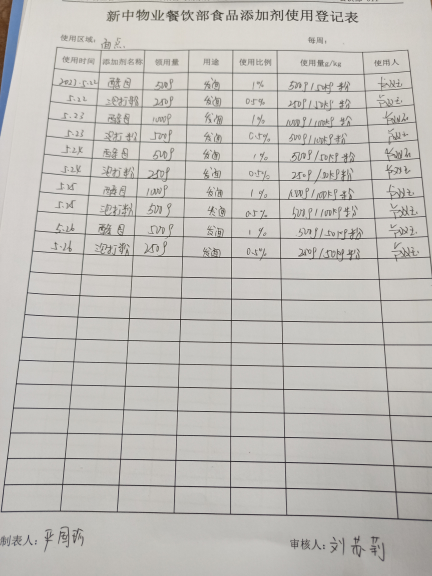 新中物业餐饮部食品添加剂使用登记表
使用区域: 面点 每周:
使用时间 添加剂名称 领用量 用途 使用比例 使用量g/kg 使用人
2023.5.22 酵母 500g 发面 1% 500g/50kg粉
5.22 泡打粉 250g 发面 0.5% 250g/50kg粉
5.23 酵母 1000g 发面 1% 1000g/100kg粉
5.23 泡打粉 500g 发面 0.5% 500g/100kg粉
5.24 酵母 500g 发面 1% 500g/50kg粉
5.24 泡打粉 250g 发面 0.5% 250g/50kg粉
5.25 酵母 1000g 发面 1% 1000g/100kg粉
5.25 泡打粉 500g 发面 0.5% 500g/100kg粉
5.26 酵母 500g 发面 1% 500g/50kg粉
5.26 泡打粉 250g 发面 0.5% 250g/50kg粉
制表人: 审核人: 刘苏莉